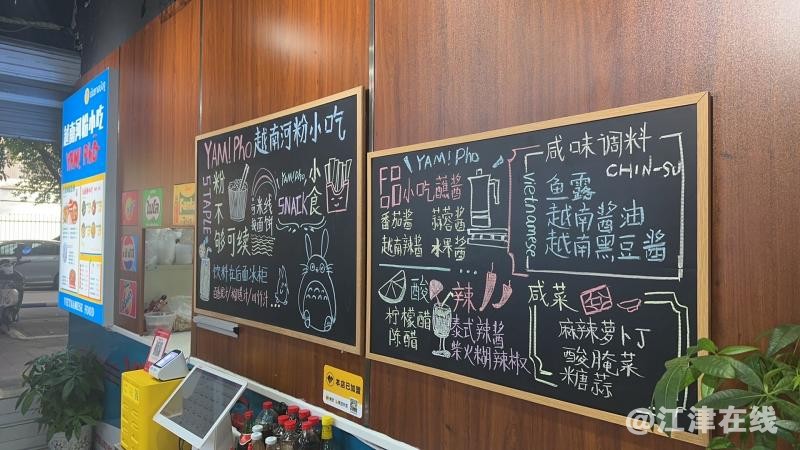 越南河粉小吃
YAM! PhO
VIETNAMESE FOOD
YAM! Pho 越南河粉小吃
STAPLE
粉
不
够可续
米线
YAM! Pho
SNACK
小食
饮料在后面冰柜
YAM! Pho
品 小吃蘸酱
番茄酱 蒜蓉酱
越南辣酱 水果酱
酸
柠檬醋
陈醋
辣
泰式辣酱
柴火糊辣椒
咸味调料
CHIN-SU
vietnamese
鱼露
越南酱油
越南黑豆酱
咸菜
麻辣萝卜丁
酸腌菜
糖蒜
本店已加盟
@江津在线